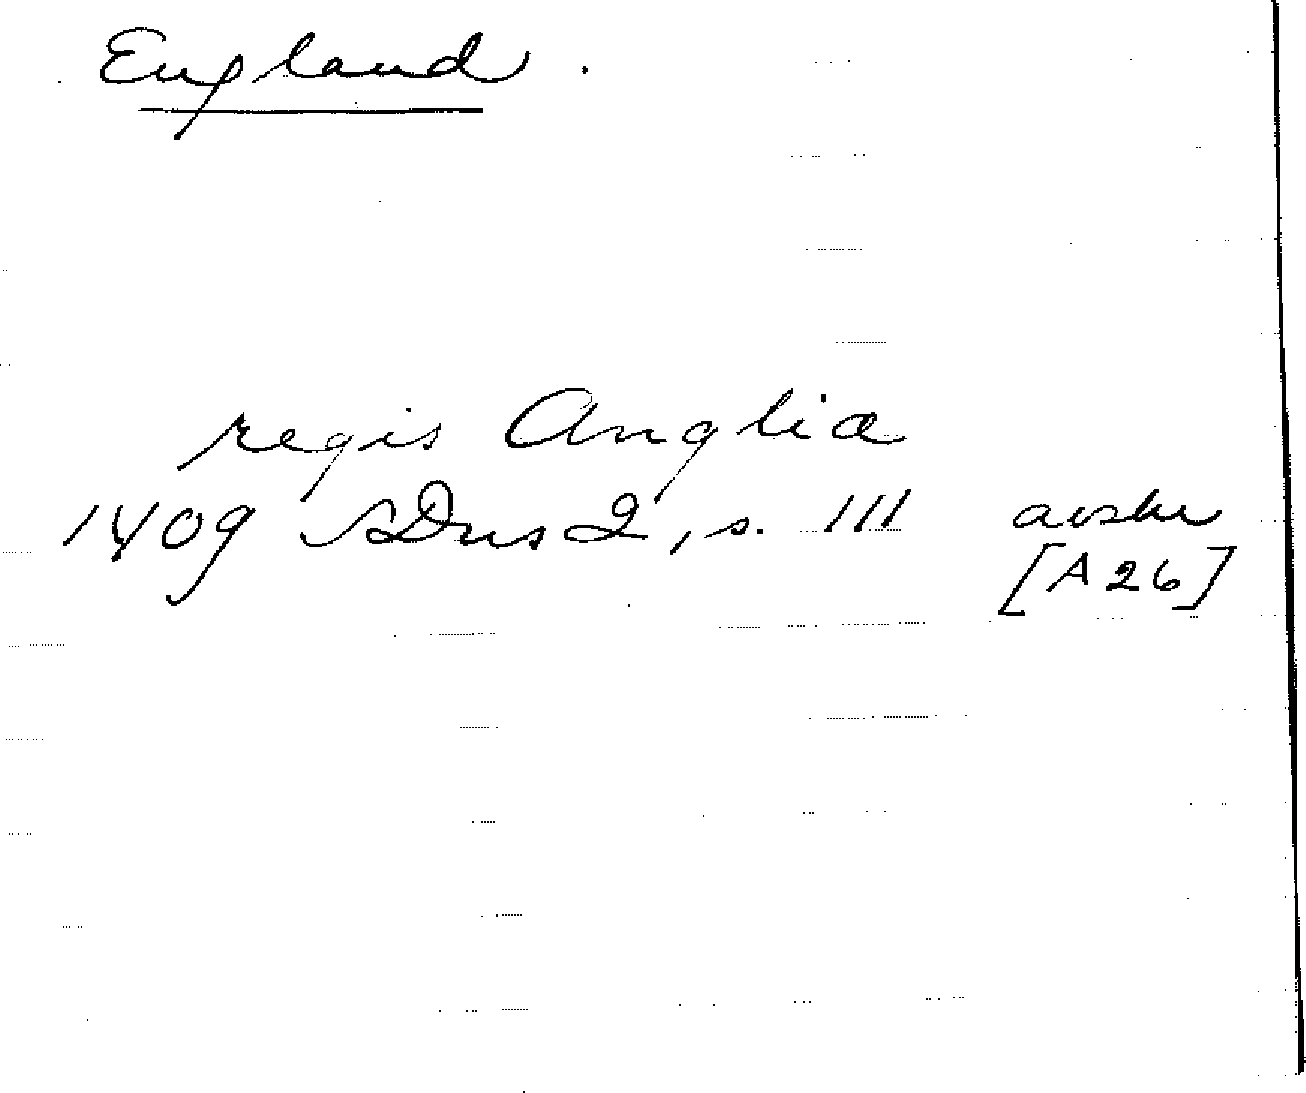 England.
regis Angliæ
1409 SDns 2, s. 111 avskr
[A 26]